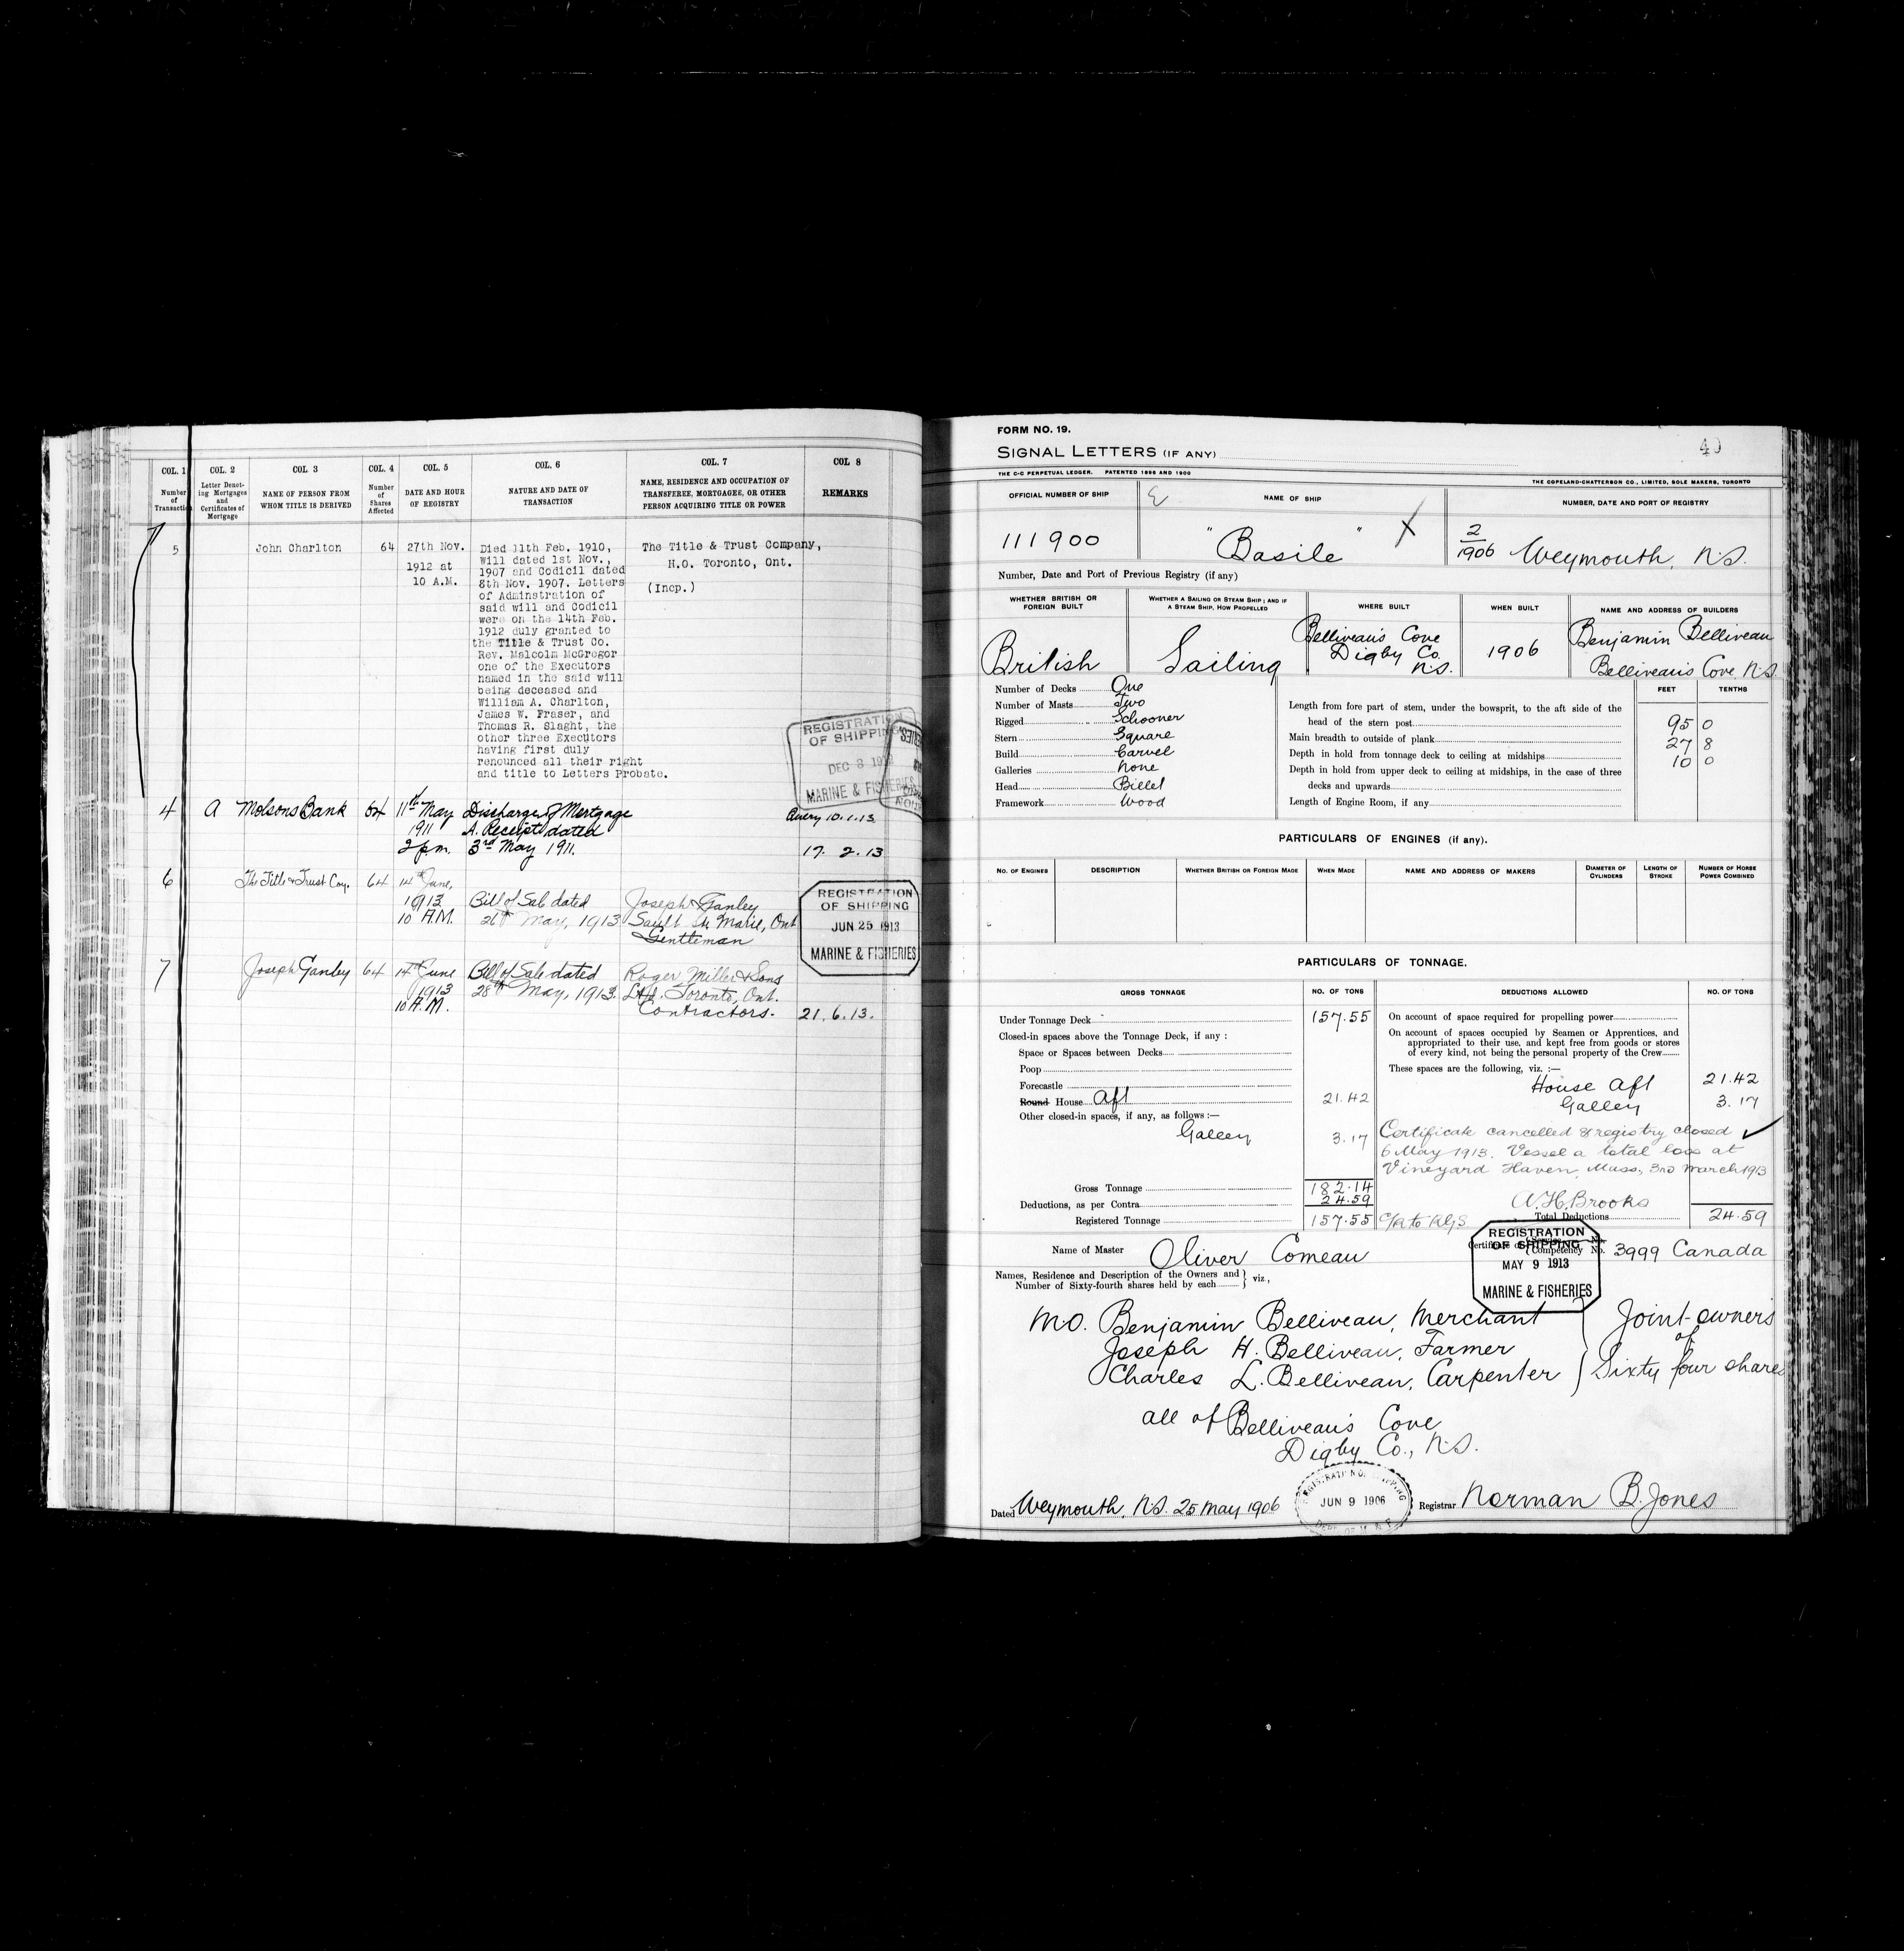 COL. 1
COL. 2
COL. 3
COL. 4
COL. 5
COL. 6
COL. 7
COL 8
Number of Transaction
Letter Denoting Mortgages and Certificates of Mortgage
NAME OF PERSON FROM WHOM TITLE IS DERIVED
Number of Shares Affected
DATE AND HOUR OF REGISTRY
NATURE AND DATE OF TRANSACTION
NAME, RESIDENCE AND OCCUPATION OF TRANSFEREE, MORTGAGEE, OR OTHER PERSON ACQUIRING TITLE OR POWER
REMARKS
5
John Charlton
64
27th Nov.
1912 at
10 A.M.
Died 11th Feb. 1910,
Will dated 1st Nov.,
1907 and Codicil dated
8th Nov. 1907. Letters
of Adminstration of
said will and Codicil
were on the 14th Feb.
1912 duly granted to
the Title & Trust Co.
Rev. Malcolm McGregor
one of the Executors
named in the said will
being deceased and
William A. Charlton,
James W. Fraser, and
Thomas R. Slaght, the
other three Executors
having first duly
renounced all their right
and title to Letters Probate.
The Title & Trust Company,
H.O. Toronto, Ont.
(Incp.)
REGISTRATION
OF SHIPPING
DEC 3 191
MARINE & FISHERIES
4 A Molsons Bank 64 11th May Discharge of Mortgage
1911 A. Receipt dated
2 p.m. 3rd May 1911.
Query 10.1.13
17. 2. 13
6 The Title & Trust Coy. 64 14th June,
1913 Bill of Sale dated Joseph Ganley
10 A.M. 26th May, 1913 Sault Ste Marie, Ont
Gentleman
REGISTRATION
OF SHIPPING
JUN 25 1913
MARINE & FISHERIES
7 Joseph Ganley 64 14th June Bill of Sale dated Roger Miller & Sons
1913 28th May, 1913. Ltd. Toronto, Ont.
10 A.M. Contractors. 21.6.13.
FORM NO. 19.
40
SIGNAL LETTERS (IF ANY)
THE C-C PERPETUAL LEDGER. PATENTED 1896 AND 1900
THE COPELAND-CHATTERSON CO., LIMITED, SOLE MAKERS, TORONTO
OFFICIAL NUMBER OF SHIP
NAME OF SHIP
NUMBER, DATE AND PORT OF REGISTRY
111900
"Basile" X
2
1906 Weymouth, N.S.
Number, Date and Port of Previous Registry (if any)
WHETHER BRITISH OR FOREIGN BUILT
WHETHER A SAILING OR STEAM SHIP; AND IF A STEAM SHIP, HOW PROPELLED
WHERE BUILT
WHEN BUILT
NAME AND ADDRESS OF BUILDERS
British
Sailing
Belliveau's Cove
Digby Co.
N.S.
1906
Benjamin Belliveau
Belliveau's Cove N.S.
Number of Decks One
Number of Masts Two
Rigged Schooner
Stern Square
Build Carvel
Galleries None
Head Billet
Framework Wood
FEET TENTHS
Length from fore part of stem, under the bowsprit, to the aft side of the
head of the stern post 95 0
Main breadth to outside of plank 27 8
Depth in hold from tonnage deck to ceiling at midships 10 0
Depth in hold from upper deck to ceiling at midships, in the case of three
decks and upwards
Length of Engine Room, if any
PARTICULARS OF ENGINES (if any).
NO. OF ENGINES
DESCRIPTION
WHETHER BRITISH OR FOREIGN MADE
WHEN MADE
NAME AND ADDRESS OF MAKERS
DIAMETER OF CYLINDERS
LENGTH OF STROKE
NUMBER OF HORSE POWER COMBINED
PARTICULARS OF TONNAGE.
GROSS TONNAGE
NO. OF TONS
DEDUCTIONS ALLOWED
NO. OF TONS
Under Tonnage Deck 157.55
Closed-in spaces above the Tonnage Deck, if any :
Space or Spaces between Decks
Poop
Forecastle
Round House Aft 21.42
Other closed-in spaces, if any, as follows :—
Galley 3.17
Gross Tonnage 182.14
Deductions, as per Contra 24.59
Registered Tonnage 157.55
On account of space required for propelling power
On account of spaces occupied by Seamen or Apprentices, and
appropriated to their use, and kept free from goods or stores
of every kind, not being the personal property of the Crew
These spaces are the following, viz. :—
House Aft 21.42
Galley 3.17
Certificate cancelled & registry closed
6 May 1913. Vessel a total loss at
Vineyard Haven, Mass, 3rd March 1913
A.H. Brooks
Total Deductions 24.59
Name of Master Oliver Comeau
Certificate of Competency No. 3999 Canada
REGISTRATION
OF SHIPPING
MAY 9 1913
MARINE & FISHERIES
Names, Residence and Description of the Owners and
Number of Sixty-fourth shares held by each } viz,
M.O. Benjamin Belliveau, Merchant
Joseph H. Belliveau, Farmer
Charles L. Belliveau, Carpenter
Joint-owners
of
Sixty four shares
all of Belliveau's Cove
Digby Co., N.S.
Dated Weymouth, N.S. 25 May 1906
JUN 9 1906
Registrar Norman B. Jones